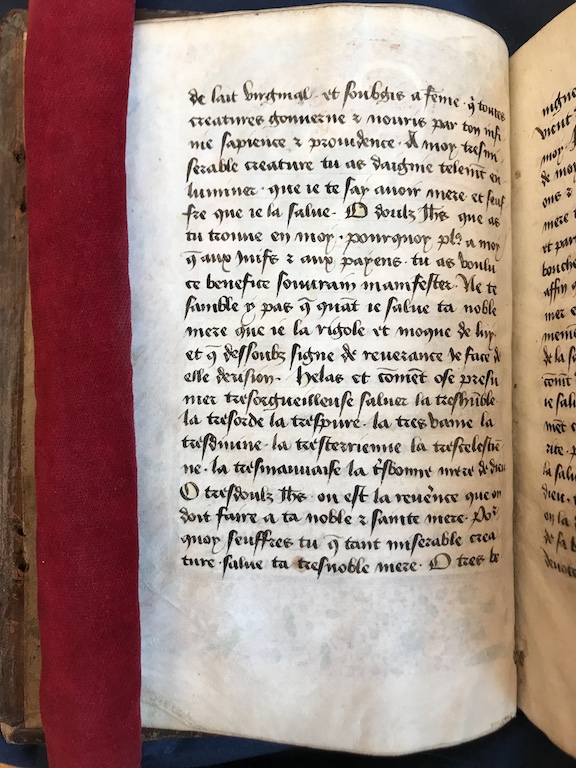 de lait virginal · et soubgis a fēme · q̄ toutes
creatures gouuerne ⁊ nouris par ton infi
nie sapience ⁊ prouidence · A moy tresmi
serable creature tu as daigme telemt̄ en
luminer · que ie te say auoir mere · et seuf
fre que ie la salue · O doulz Ihs̄ que as
tu trouue en moy · pourquoy pl9 a moy
q̄ aux iuifs ⁊ aux payens · tu as voulu
ce benefice souurain manifester · Ne te
samble y pas q̄ quāt ie salue ta noble
mere que ie la rigole et moque de luy ·
et q̄ dessoubz signe de reuerance ie face de
elle derision · helas et cōmēt ose presu
mer tresorgueilleuse saluer la treshūble
la tresorde la trespure · la tres vaine la
tresdiuine · la tresterrienne la trescelestiē
ne · la tresmauuaise la tsbonne mere de dieu
O tresdoulz Ihs̄ · ou est la reuer̄nce que on
doit faire a ta noble ⁊ sainte mere · Por
quoy seuffres tu q̄ tant miserable crea
ture · salue ta tresnoble mere · O tres be
nigne
vient
moy
de moy
ons ⁊
mere
et par
bouche
affin q
mer e
meme
de la s
ie salu
met e
rite · p
la salu
dieu ·
en la
de sa b